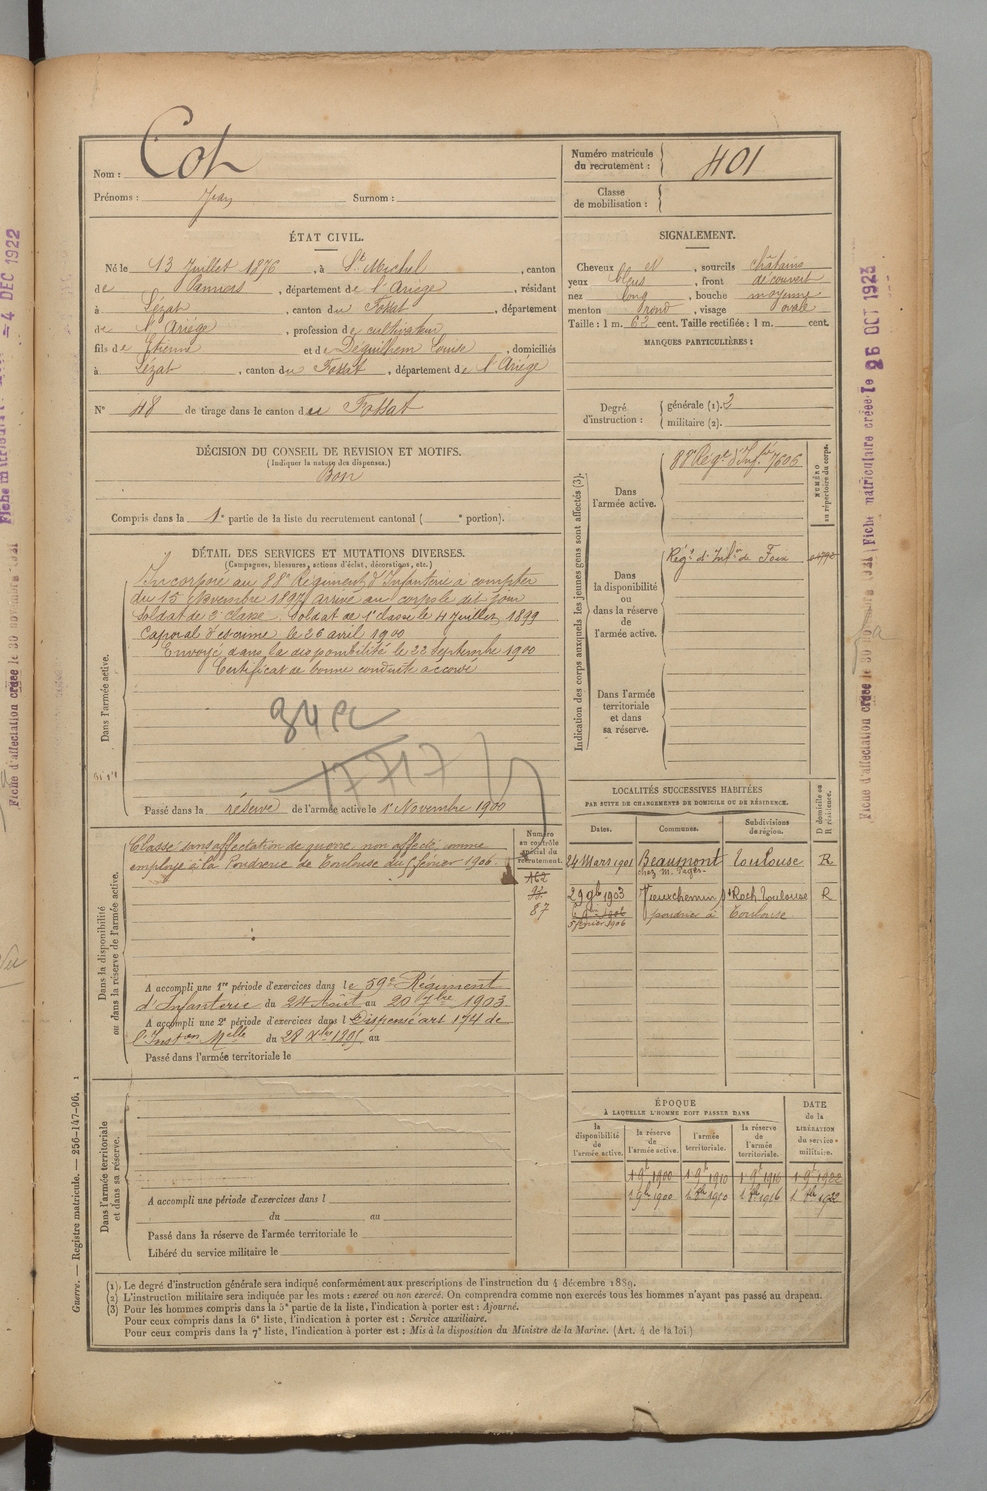 Nom : Cot
Prénoms : Jean Surnom :
Numéro matricule du recrutement : 401
Classe de mobilisation :
ÉTAT CIVIL.
Né le 13 Juillet 1876, à St Michel, canton
de Pamiers, département de l'Ariège, résidant
à Lézat, canton du Fossat, département
de l'Ariège, profession de cultivateur
fils de Etienne et de Déguilhem Louise, domiciliés
à Lézat, canton du Fossat, département de l'Ariège
N° 48 de tirage dans le canton du Fossat
SIGNALEMENT.
Cheveux et, sourcils châtains
yeux bleus, front découvert
nez long, bouche moyenne
menton rond, visage ovale
Taille : 1 m. 62 cent. Taille rectifiée : 1 m. cent.
MARQUES PARTICULIÈRES :
Degré d'instruction : générale (1). 3
militaire (2).
DÉCISION DU CONSEIL DE REVISION ET MOTIFS.
(Indiquer la nature des dispenses.)
Bon
Compris dans la 1e partie de la liste du recrutement cantonal ( e portion).
DÉTAIL DES SERVICES ET MUTATIONS DIVERSES.
(Campagnes, blessures, actions d'éclat, décorations, etc.)
Dans l'armée active.
Incorporé au 88e Régiment d'Infanterie à compter
du 15 Novembre 1897 arrivé au corps le dit jour
soldat de 2e classe. Soldat de 1e classe le 4 juillet 1899
Caporal d'escrime le 26 avril 1900
Envoyé dans la disponibilité le 22 Septembre 1900
Certificat de bonne conduite accordé
17717
Passé dans la réserve de l'armée active le 1er Novembre 1900
Indication des corps auxquels les jeunes gens sont affectés (3).
NUMÉRO au répertoire du corps.
Dans l'armée active.
88e Régt d'Infie 7605
Dans la disponibilité ou dans la réserve de l'armée active.
Régt d'Infie de Foix
Dans l'armée territoriale et dans sa réserve.
Dans la disponibilité ou dans la réserve de l'armée active.
Numéro au contrôle spécial du recrutement.
Classé sans affectation de guerre, non affecté, comme
employé à la Poudrerie de Toulouse du 5 février 1906.
162
87
A accompli une 1re période d'exercices dans le 59e Régiment
d'Infanterie du 24 Août au 20 7bre 1903
A accompli une 2e période d'exercices dans l Dispensé art 174 de
l'Inston Melle du 28 Xbre 1895 au
Passé dans l'armée territoriale le
LOCALITÉS SUCCESSIVES HABITÉES
PAR SUITE DE CHANGEMENTS DE DOMICILE OU DE RÉSIDENCE.
D domicile ou R résidence.
Dates. Communes. Subdivisions de région.
24 Mars 1901 Beaumont Toulouse R
chez M. Pagès
2 9bre 1903 Vieuxchemin St Roch Toulouse R
5 février 1906 poudrier à Toulouse
Dans l'armée territoriale et dans sa réserve.
A accompli une période d'exercices dans l
du au
Passé dans la réserve de l'armée territoriale le
Libéré du service militaire le
ÉPOQUE
À LAQUELLE L'HOMME DOIT PASSER DANS
la disponibilité de l'armée active.
la réserve de l'armée active.
l'armée territoriale.
la réserve de l'armée territoriale.
DATE de la LIBÉRATION du service militaire.
1 9bre 1900 1 9bre 1910 1 9bre 1916 1 9bre 1922
1 9bre 1900 1 8bre 1910 1 8bre 1916 1 8bre 1922
(1). Le degré d'instruction générale sera indiqué conformément aux prescriptions de l'instruction du 4 décembre 1889.
(2) L'instruction militaire sera indiquée par les mots : exercé ou non exercé. On comprendra comme non exercés tous les hommes n'ayant pas passé au drapeau.
(3) Pour les hommes compris dans la 5e partie de la liste, l'indication à porter est : Ajourné.
Pour ceux compris dans la 6e liste, l'indication à porter est : Service auxiliaire.
Pour ceux compris dans la 7e liste, l'indication à porter est : Mis à la disposition du Ministre de la Marine. (Art. 4 de la loi.)
Guerre. — Registre matricule. — 256-147-96. 1
Fiche matriculaire créée le 26 OCT 1923
Fiche d'affectation créée le 30 novembre 1931
= 4 DEC 1922
Fiche d'affectation créée le 30 novembre 1931